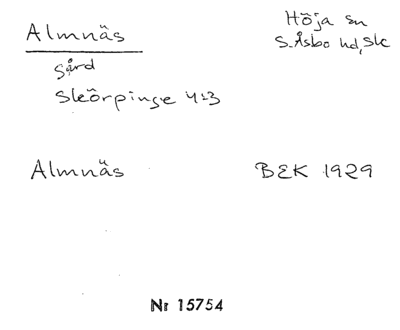 Almnäs
Höja sn
S. Åsbo hd, Sk
gård
Skörpinge 4:3
Almnäs
BEK 1929
Nr 15754